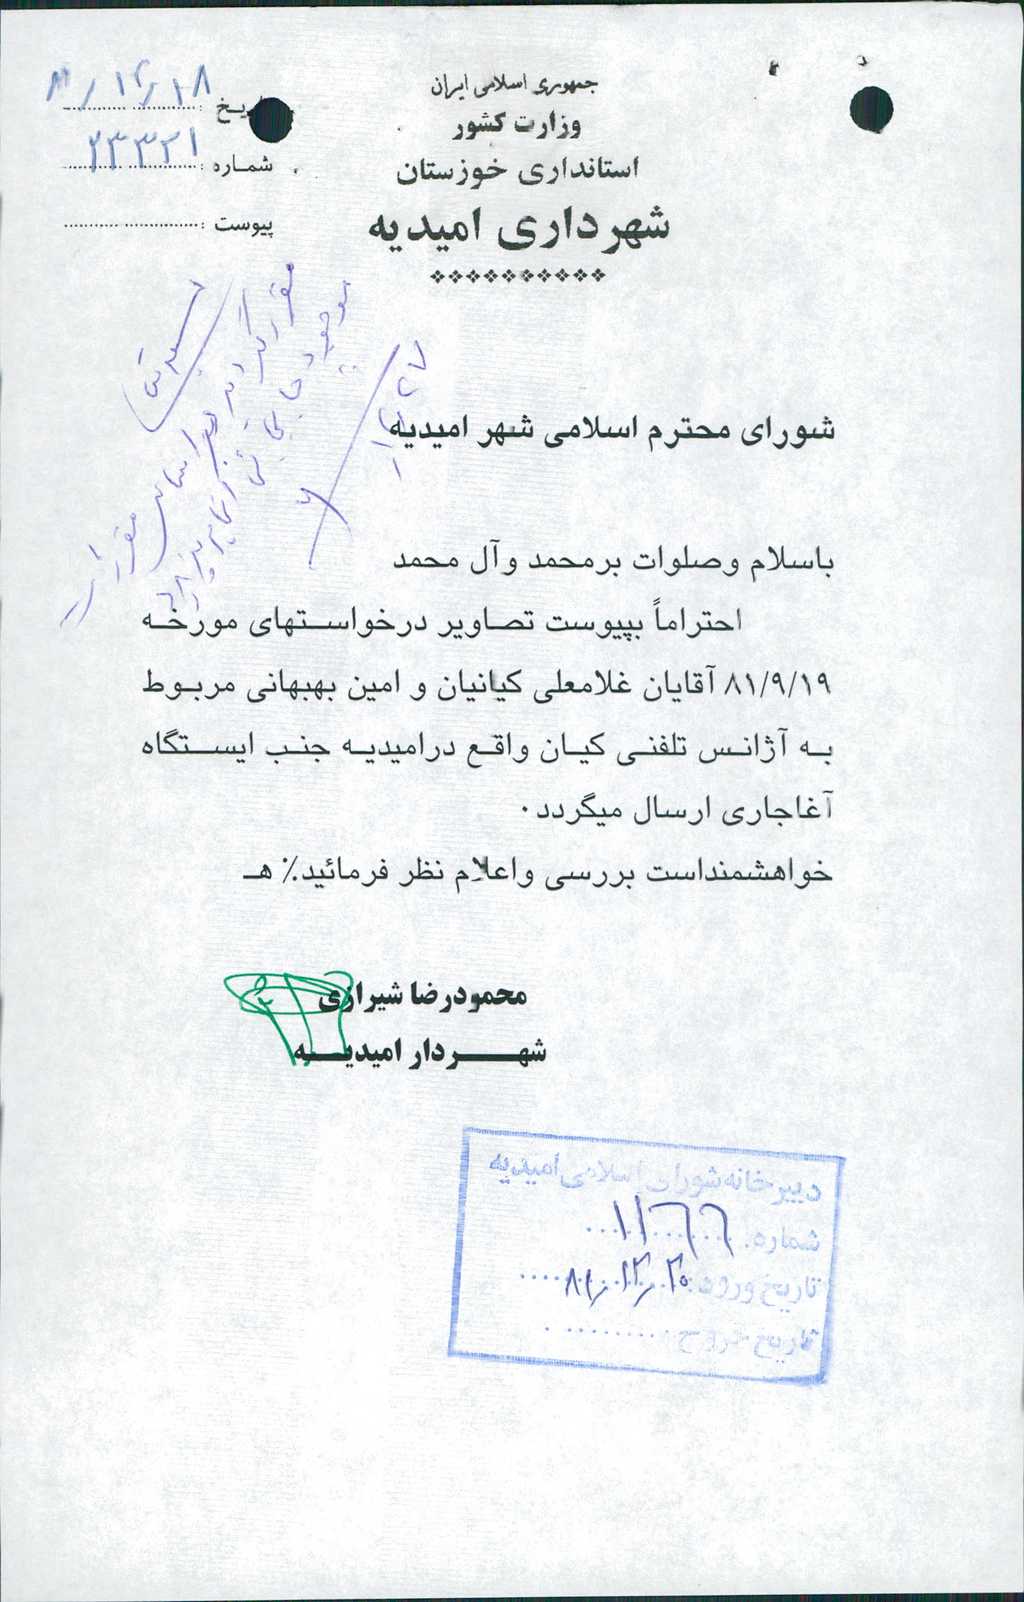 جمهوری اسلامی ایران
وزارت کشور
استانداری خوزستان
شهرداری امیدیه
تاریخ : ۸۱/۱۲/۱۸
شماره : ۲۳۳۲۱
پیوست :
شورای محترم اسلامی شهر امیدیه
باسلام وصلوات برمحمد وآل محمد
احتراماً بپیوست تصاویر درخواستهای مورخه
۸۱/۹/۱۹ آقایان غلامعلی کیانیان و امین بهبهانی مربوط
به آژانس تلفنی کیان واقع درامیدیه جنب ایستگاه
آغاجاری ارسال میگردد۰
خواهشمنداست بررسی واعلام نظر فرمائید٪ هـ
محمودرضا شیرازی
شهردار امیدیه
دبیرخانه شورای اسلامی امیدیه
شماره: ۱۱۶۶
تاریخ ورود: ۸۱/۱۲/۲۰
تاریخ خروج: